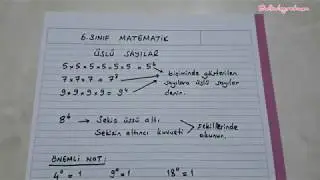 6. SINIF MATEMATİK
ÜSLÜ SAYILAR
5×5×5×5×5×5 = 5⁶
7×7×7 = 7³
9×9×9×9 = 9⁴
biçiminde gösterilen
sayılara üslü sayılar
denir.
8⁶ → Sekiz üssü altı
Sekizin altıncı kuvveti
şekillerinde
okunur.
ÖNEMLİ NOT:
4⁰ = 1 9⁰ = 1 18⁰ = 1